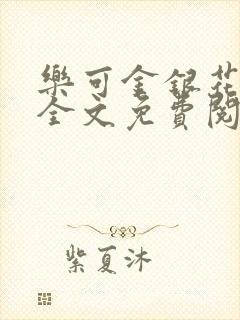 樂可金銀花
全文免費閱
紫夏沐